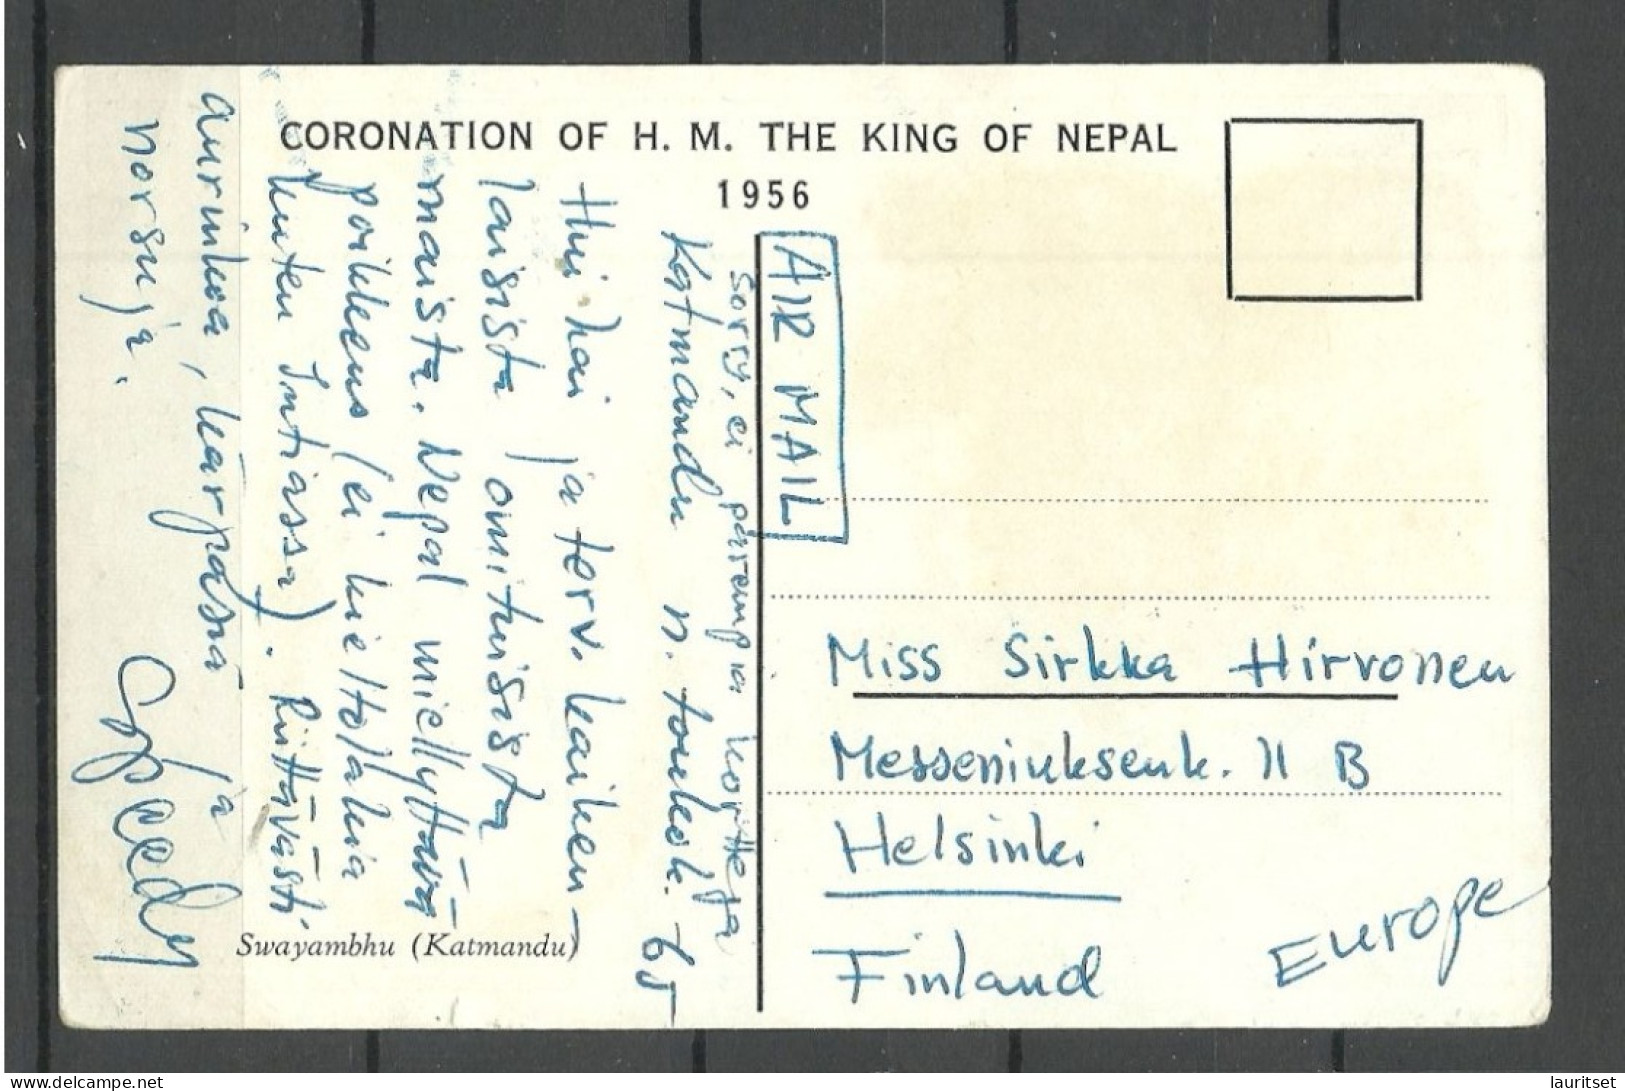 CORONATION OF H. M. THE KING OF NEPAL
1956
AIR MAIL
Sorry, ei parempia kortteja
Katmandu n. toukok. 65
Hui hai ja terv. kaiken-
laisista omituisista
maista. Nepal miellyttävä
poikkeus (ei kieltolakia
kuten Intiassa). Riittävästi
aurinkoa, kärpäsiä ja
norsuja.
Speedy
Swayambhu (Katmandu)
Miss Sirkka Hirvonen
Messeniuksenk. 11 B
Helsinki
Finland
Europe
www.delcampe.net
lauritset